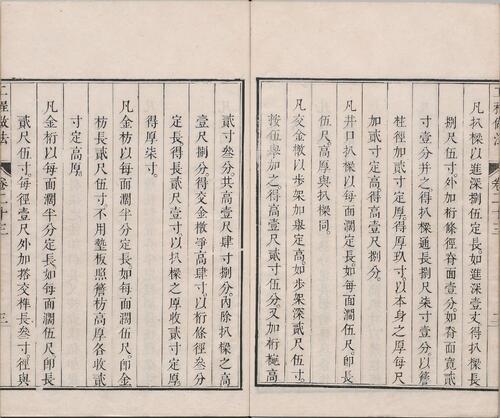 凡扒樑以進深捌伍定長如進深壹丈得扒樑長
捌尺伍寸外加桁條徑脊面壹分如脊面寬貳
寸壹分并之得扒樑通長捌尺柒寸壹分以簷
柱徑加貳寸定厚得厚玖寸以本身之厚每尺
加貳寸定高得高壹尺捌分
凡井口扒樑以每面濶定長如每面濶伍尺即長
伍尺高厚與扒樑同
凡交金橔以步架加舉定高如步架深貳尺伍寸
按伍舉加之得高壹尺貳寸伍分又加桁椀高
工程做法
卷二十三
二
貳寸叁分共高壹尺肆寸捌分內除扒樑之高
壹尺捌分得交金橔淨高肆寸以桁條徑叁分
定長得長貳尺壹寸以扒樑之厚收貳寸定厚
得厚柒寸
凡金枋以每面濶半分定長如每面濶伍尺即金
枋長貳尺伍寸不用墊板照簷枋高厚各收貳
寸定高厚
凡金桁以每面濶半分定長如每面濶伍尺即長
貳尺伍寸每徑壹尺外加搭交榫長叁寸徑與
工程做法
卷二十三
三